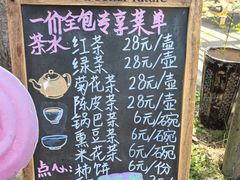 一价全包专享菜单
茶水 红茶 28元/壶
绿茶 28元/壶
菊花茶 28元/壶
陈皮茶 28元/壶
锅巴茶 6元/碗
熏豆茶 6元/碗
米花茶 6元/碗
点心: 柿饼 6元/份